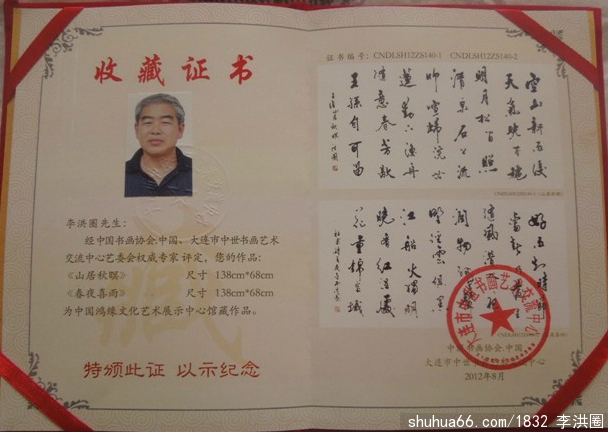 收藏证书
李洪圈先生：
经中国书画协会.中国、大连市中世书画艺术
交流中心艺委会权威专家评定，您的作品：
《山居秋暝》 尺寸 138cm*68cm
《春夜喜雨》 尺寸 138cm*68cm
为中国鸿缘文化艺术展示中心馆藏作品。
特颁此证 以示纪念
证书编号：CNDLSH12ZS140-1 CNDLSH12ZS140-2
空山新雨後
天氣晚来秋
明月松間照
清泉石上流
竹喧歸浣女
蓮動下漁舟
隨意春芳歇
王孫自可留
好雨知時節
當春乃發生
隨風潜
潤物細無聲
野径雲俱黑
江船火獨明
曉看紅濕處
花重錦官城
中国书画协会.中国、
大连市中世书画艺术交流中心
2012年8月
shuhua66.com/1832 李洪圈